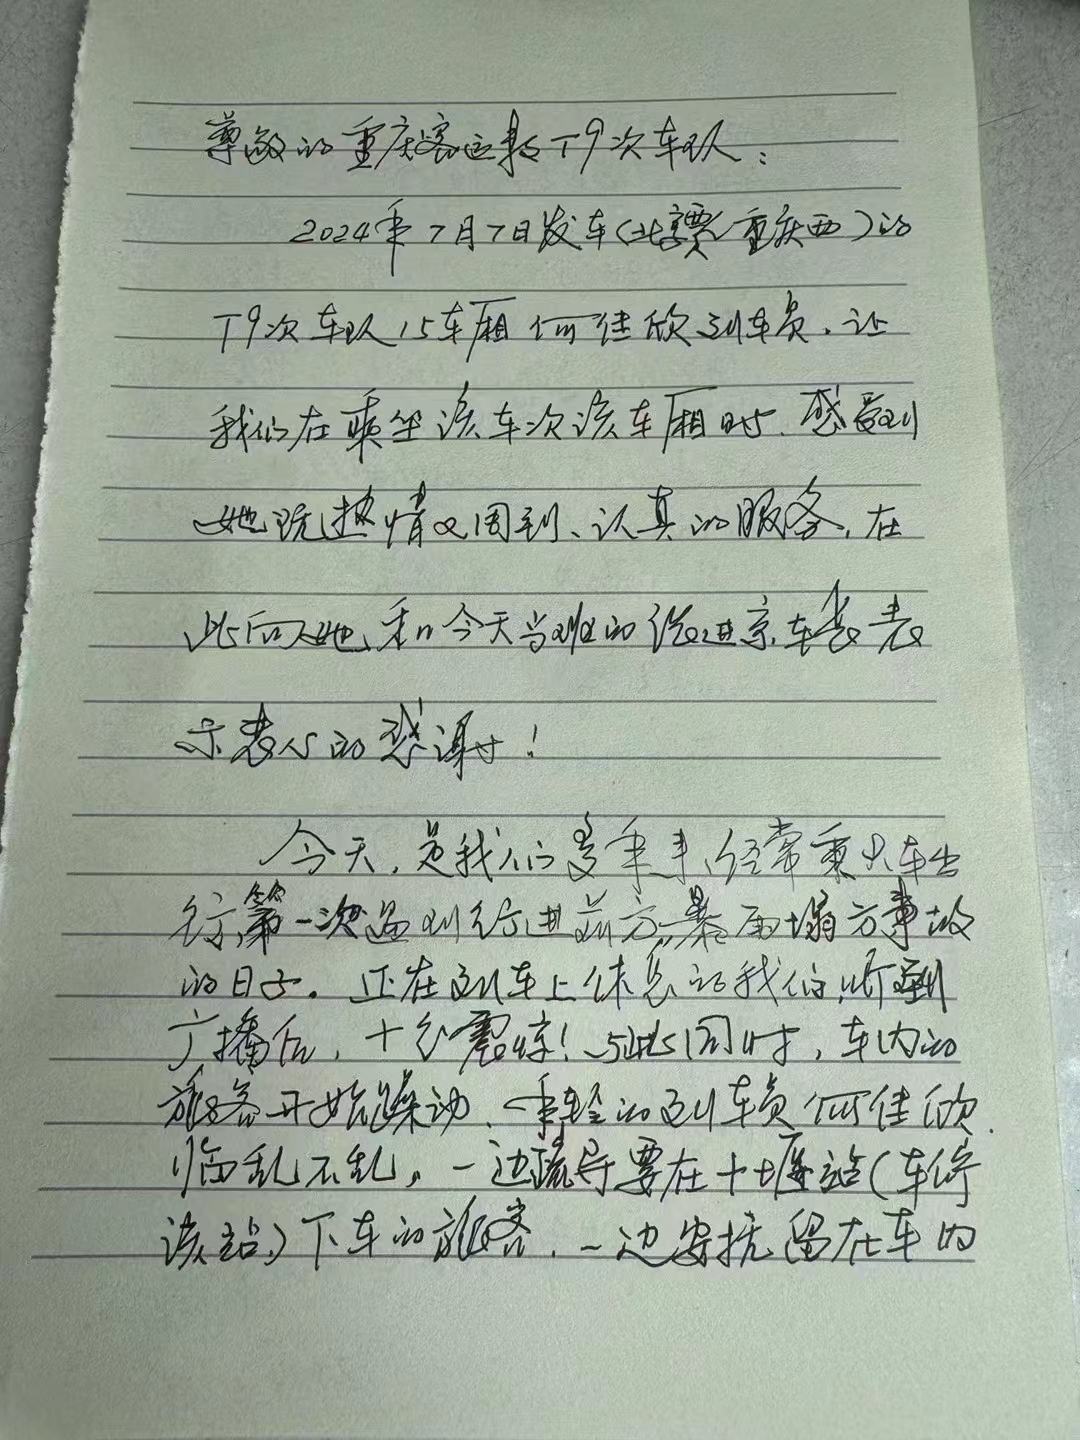 尊敬的重庆客运段T9次车队：
2024年7月7日发车(北京西/重庆西)的
T9次车队15车厢何佳欣列车员，让
我们在乘坐该车次该车厢时，感受到
她既热情又周到、认真的服务，在
此向她和今天当班的进京车长表
示衷心的感谢！
今天，是我们多年来，经常乘火车出
行，第一次遇到行进前方暴雨塌方事故
的日子。正在列车上休息的我们，听到
广播后，十分震惊！与此同时，车内的
旅客开始躁动，年轻的列车员何佳欣，
临乱不乱，一边疏导要在十堰站(车停
该站)下车的旅客，一边安抚留在车内